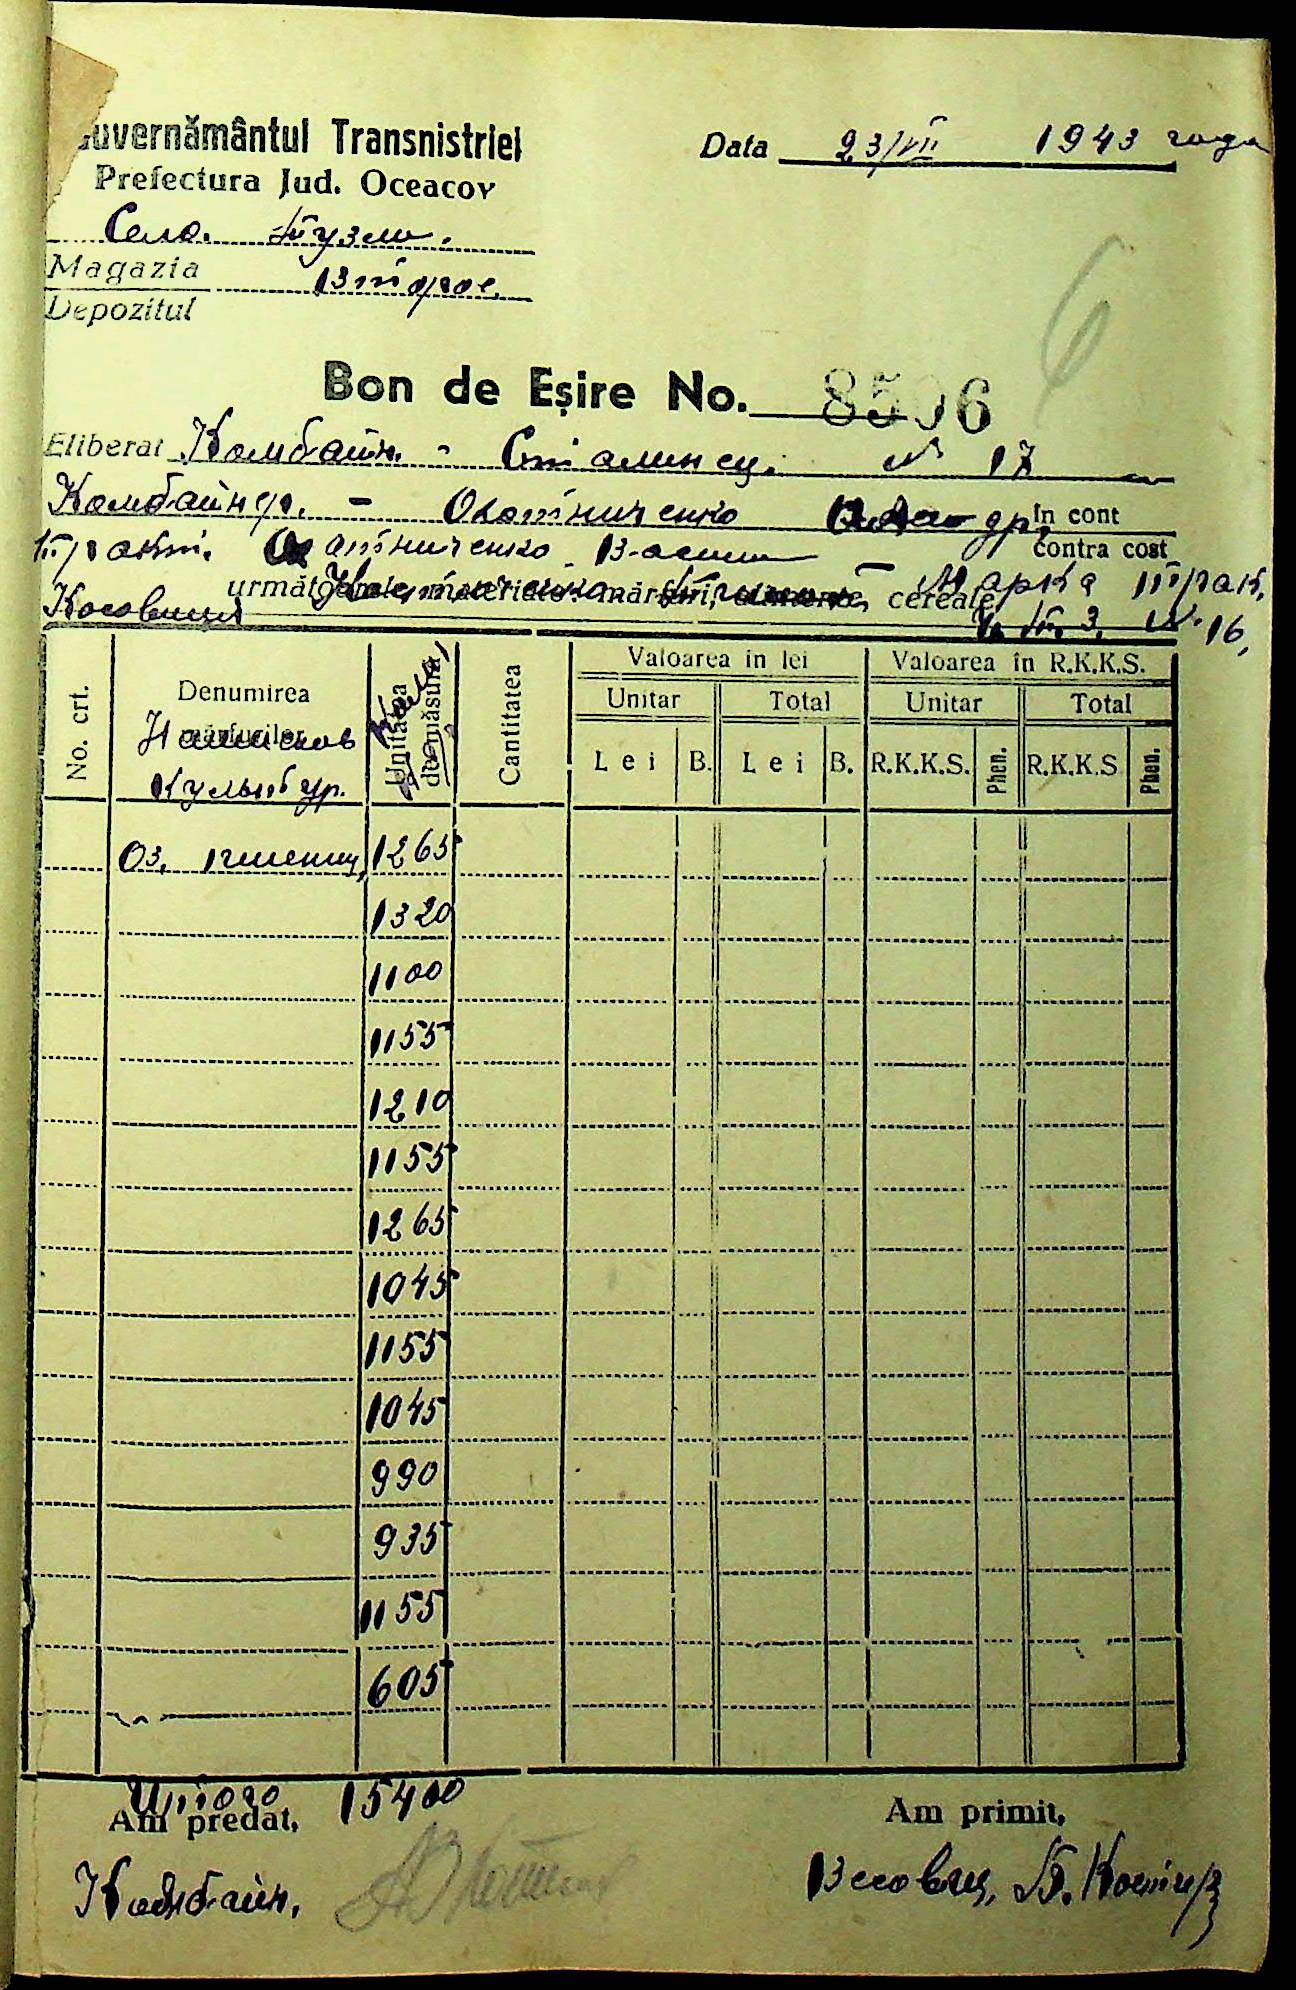 Guvernământul Transnistriei
Data 23/VII 1943 года
Prefectura Jud. Oceacov
Село. Тузлы.
Magazia Второе.
Depozitul
6
Bon de Eşire No. 8506
Eliberat Комбайн. - Сталинец. № 17
Комбайнер. - In cont
тракт. contra cost
următoarele materiale: mărfuri, alimente, cereale
Марка трак.
У. Т. З. № 16,
No. crt.
Denumirea
mărfurilor
культур.
Unitatea de măsură
Cantitatea
Valoarea in lei
Valoarea în R.K.K.S.
Unitar Total Unitar Total
Lei B. Lei B. R.K.K.S. Phen. R.K.K.S Phen.
Оз. пшениц, 1265
1320
1100
1155
1210
1155
1265
1045
1155
1045
990
935
1155
605
Итого 15400
Am predat,
Am primit,
Комбайн.
Весовщ,